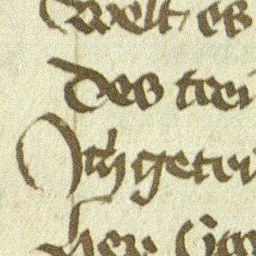 welt es
des trei
Ich getri
her